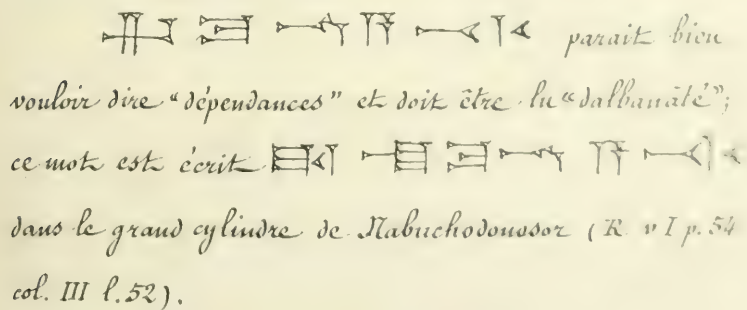 parait bien
vouloir dire "dépendances" et doit être lu "dalbanâté";
ce mot est écrit
dans le grand cylindre de Nabuchodonosor (R. v I p. 54
col. III l. 52).